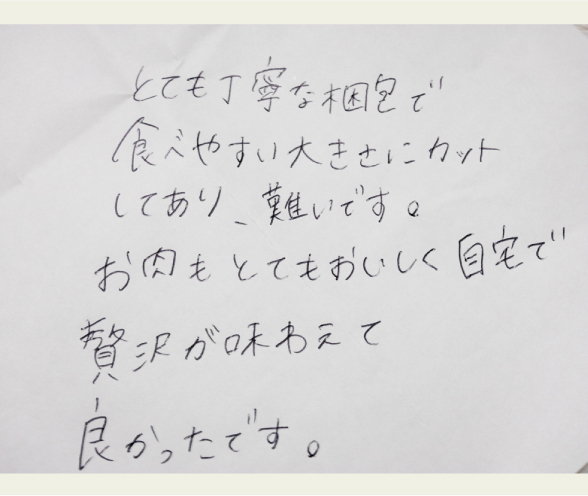 とても丁寧な梱包で
食べやすい大きさにカット
してあり、難いです。
お肉もとてもおいしく自宅で
贅沢が味わえて
良かったです。